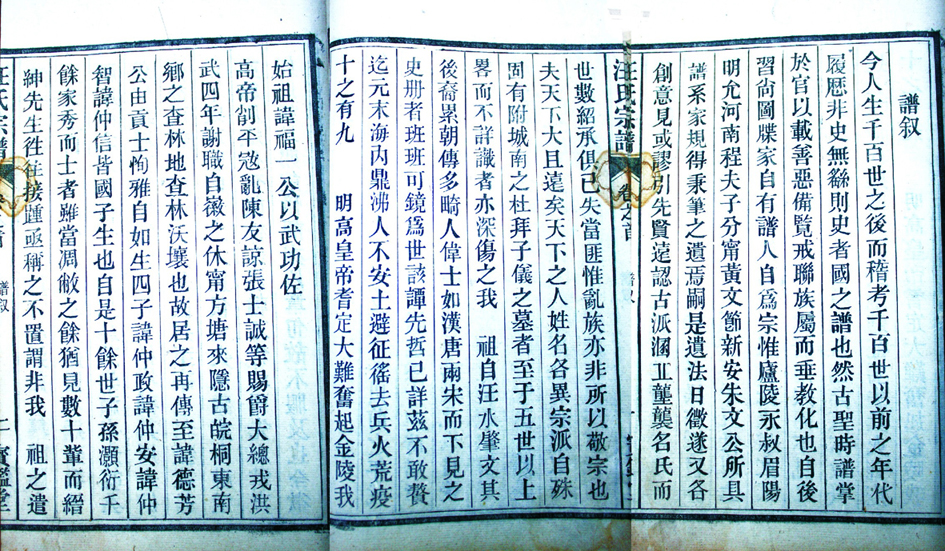 譜叙
今人生千百世之後而稽考千百世以前之年代
履歷非史無繇則史者國之譜也然古聖時譜掌
於官以載善惡備覧戒聯族屬而垂教化也自後
習尙圖牒家自有譜人自爲宗惟廬陵永叔眉陽
明允河南程夫子分甯黄文節新安朱文公所具
譜系家規得秉筆之遺焉嗣是遺法日微遂又各
創意見或謬引先賢遠認古派溷工壟襲名氏而
汪氏宗譜
卷之首
譜叙
世數紹承俱已失當匪惟亂族亦非所以敬宗也
夫天下大且遠矣天下之人姓名各異宗派自殊
固有附城南之杜拜子儀之墓者至于五世以上
畧而不詳識者亦深傷之我 祖自汪水肇文其
後裔累朝傳多畸人偉士如漢唐兩宋而下見之
史册者班班可鏡爲世該譚先哲已詳茲不敢贅
迄元末海内鼎沸人不安土避征徭去兵火荒疫
十之有九 明高皇帝耆定大難奮起金陵我
始祖諱福一公以武功佐
高帝剷平冦亂陳友諒張士誠等賜爵大總戎洪
武四年謝職自徽之休甯方塘來隱古皖桐東南
鄉之查林地查林沃壤也故居之再傳至諱德芳
公由貢士恂雅自如生四子諱仲政諱仲安諱仲
智諱仲信皆國子生也自是十餘世子孫灝衍千
餘家秀而士者難當凋敝之餘猶見數十輩而縉
紳先生徃徃接踵亟稱之不置謂非我 祖之遺
汪氏宗譜
譜叙